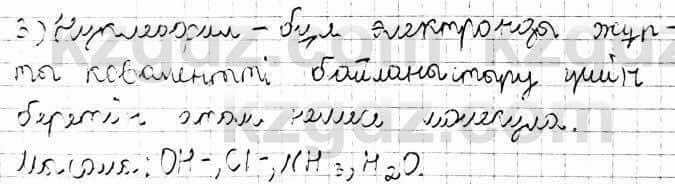 3) Нуклеофил – бұл электронды жұп-
ты ковалентті байланыстыру үшін
беретін атом немесе молекула.
Мысалы: OH-, Cl-, NH3, H2O.